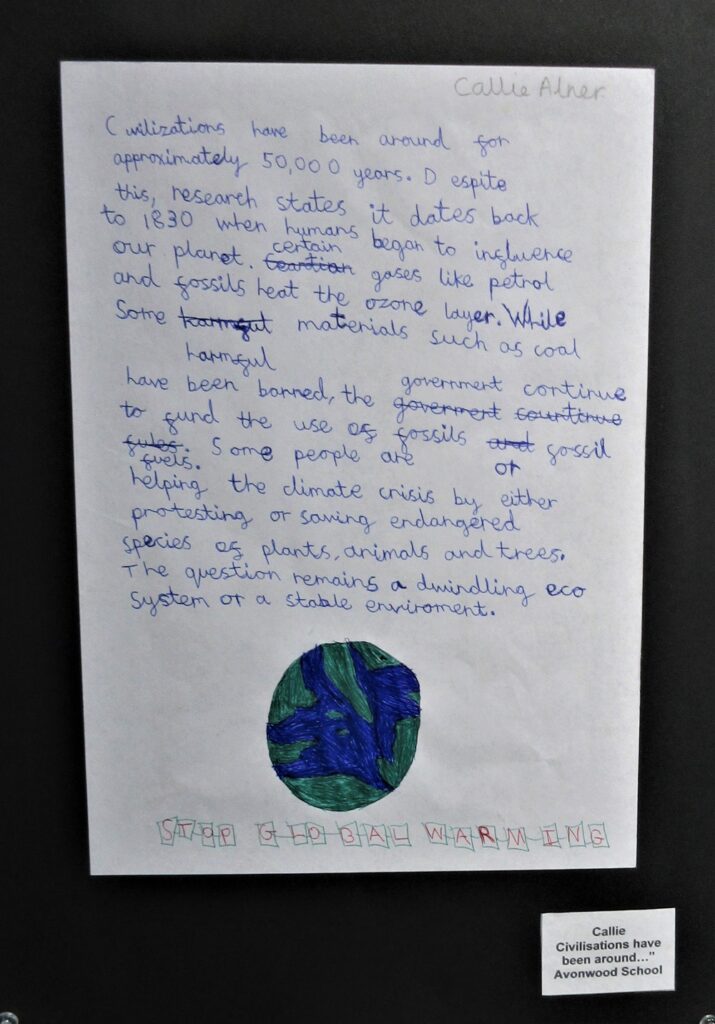 Callie Alner
Civilizations have been around for
approximately 50,000 years. Despite
this, research states it dates back
to 1830 when humans began to influence
our planet. certain ceartian gases like petrol
and fossils heat the ozone layer. While
Some harmful materials such as coal
harmful
have been banned, the government continue
goverment countinue
to fund the use of fossils and fossil
fules. Some people are or
fuels.
helping the climate crisis by either
protesting or saving endangered
species of plants, animals and trees.
The question remains a dwindling eco
system or a stable enviroment.
STOP GLOBAL WARMING
Callie
Civilisations have
been around..."
Avonwood School